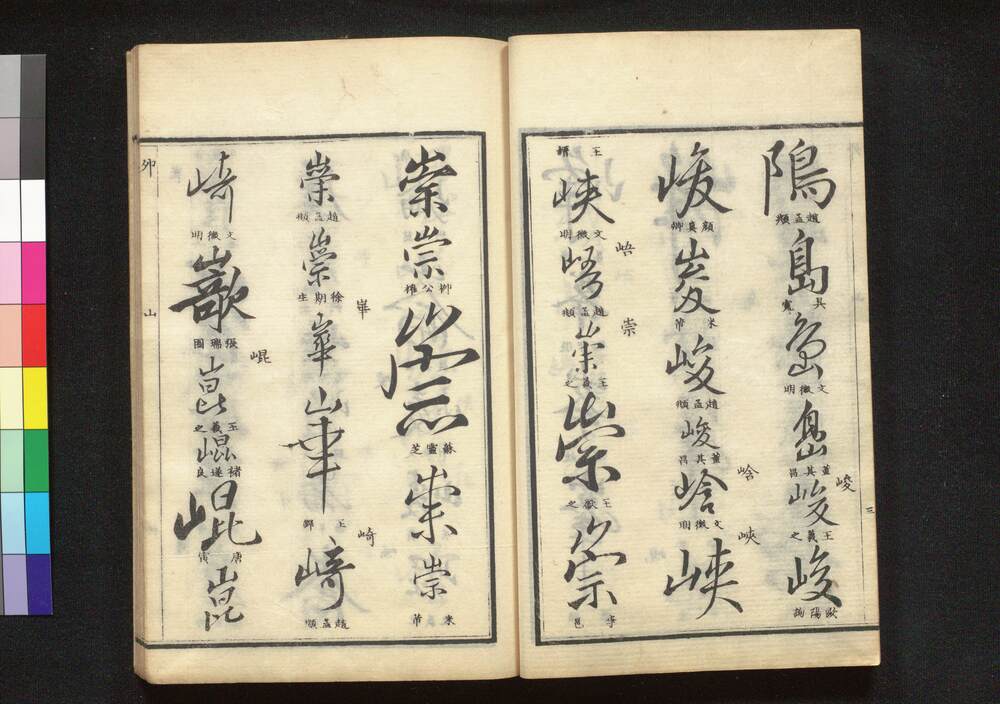 隝 趙孟頫 島 吳寬 島 文徵明 島 董其昌 峻 峻 王羲之 峻 歐陽詢
三
峻 顏真卿 峻 米芾 峻 趙孟頫 峻 董其昌 峆 峆 文徵明 峽 峽
王 峽 文徵明 峿 峿 趙孟頫 崇 崇 王羲之 崇 王獻之 崇 李邕
崇 崇 柳公權 崇 蘇靈芝 崇 崇 米芾
崇 趙孟頫 崇 徐期生 崋 崋 崋 王鐸 崎 崎 趙孟頫
崎 文徵明 㠊 張瑞圖 崐 崑 王羲之 崐 褚遂良 崐 唐寅 崑
卯
山